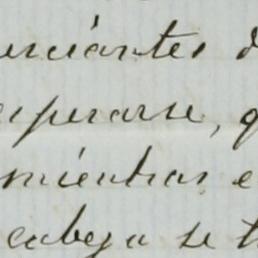 erciantes d
esperarse, q
mientras e
cabeza se t